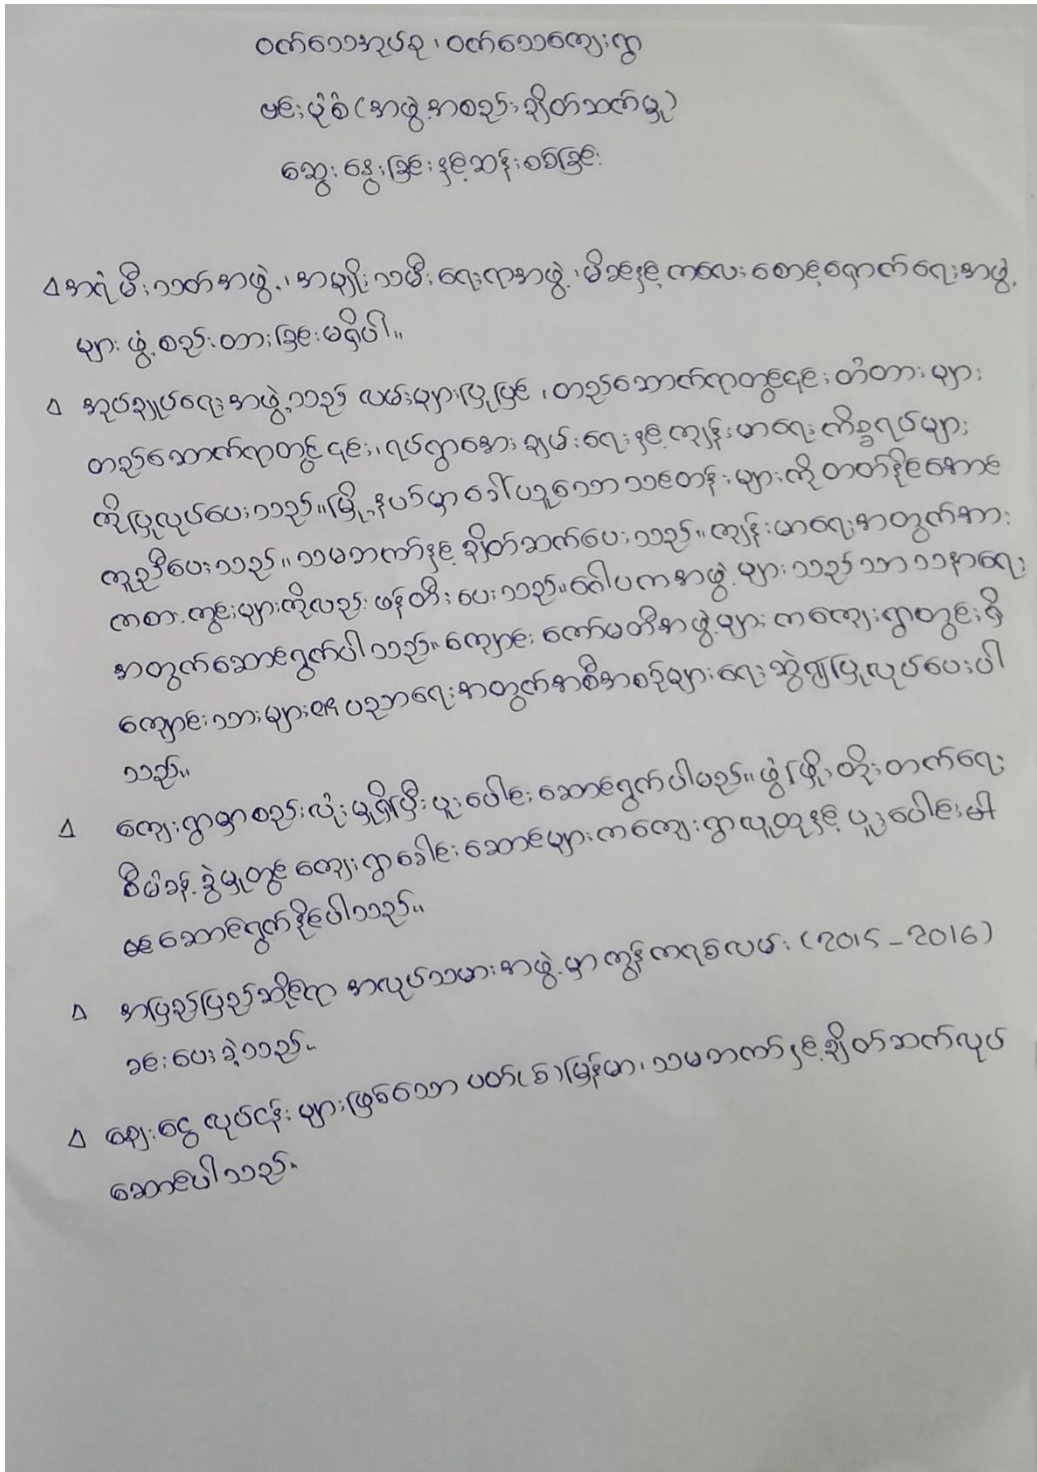 ဝက်သေအုပ်စု ၊ ဝက်သေကျေးရွာ
ဗင်းပုံစံ (အဖွဲ့အစည်းချိတ်ဆက်မှု)
ဆွေးနွေးခြင်းနှင့်ဆန်းစစ်ခြင်း
Δ အရံမီးသတ်အဖွဲ့ ၊ အမျိုးသမီးရေးရာအဖွဲ့ ၊ မိခင်နှင့်ကလေးစောင့်ရှောက်ရေးအဖွဲ့
များ ဖွဲ့စည်းထားခြင်းမရှိပါ။
Δ အုပ်ချုပ်ရေးအဖွဲ့သည် လမ်းများပြုပြင် ၊ တည်ဆောက်ရာတွင်၎င်း တံတားများ
တည်ဆောက်ရာတွင်၎င်း ၊ ရပ်ရွာအေးချမ်းရေးနှင့်ကျန်းမာရေးကိစ္စရပ်များ
ကိုပြုလုပ်ပေးသည်။ မြို့နယ်မှာခေါ်ယူသောသင်တန်းများကိုတတ်နိုင်အောင်
ကူညီပေးသည်။ သမဘက်နှင့်ချိတ်ဆက်ပေးသည်။ ကျန်းမာရေးအတွက်အား
ကစားကွင်းများကိုလည်းဖန်တီးပေးသည်။ ဂေါပကအဖွဲ့များသည်သာသနာရေး
အတွက်ဆောင်ရွက်ပါသည်။ ကျောင်းကော်မတီအဖွဲ့များကကျေးရွာတွင်းရှိ
ကျောင်းသားများ၏ပညာရေးအတွက်အစီအစဉ်များရေးဆွဲ၍ပြုလုပ်ပေးပါ
သည်။
Δ ကျေးရွာမှာစည်းလုံးမှုရှိပြီးပူးပေါင်းဆောင်ရွက်ပါမည်။ ဖွံ့ဖြိုးတိုးတက်ရေး
စီမံခန့်ခွဲမှုတွင် ကျေးရွာခေါင်းဆောင်များကကျေးရွာလူထုနှင့် ပူးပေါင်းပါ
ဝင်ဆောင်ရွက်နိုင်ပါသည်။
Δ အပြည်ပြည်ဆိုင်ရာ အလုပ်သမားအဖွဲ့မှာကွန်ကရစ်လမ်း (2015 - 2016)
ခင်းပေးခဲ့သည်။
Δ ချေးငွေလုပ်ငန်းများဖြစ်သော ပတ်(စ်)မြန်မာ ၊ သမဘက်နှင့်ချိတ်ဆက်လုပ်
ဆောင်ပါသည်။